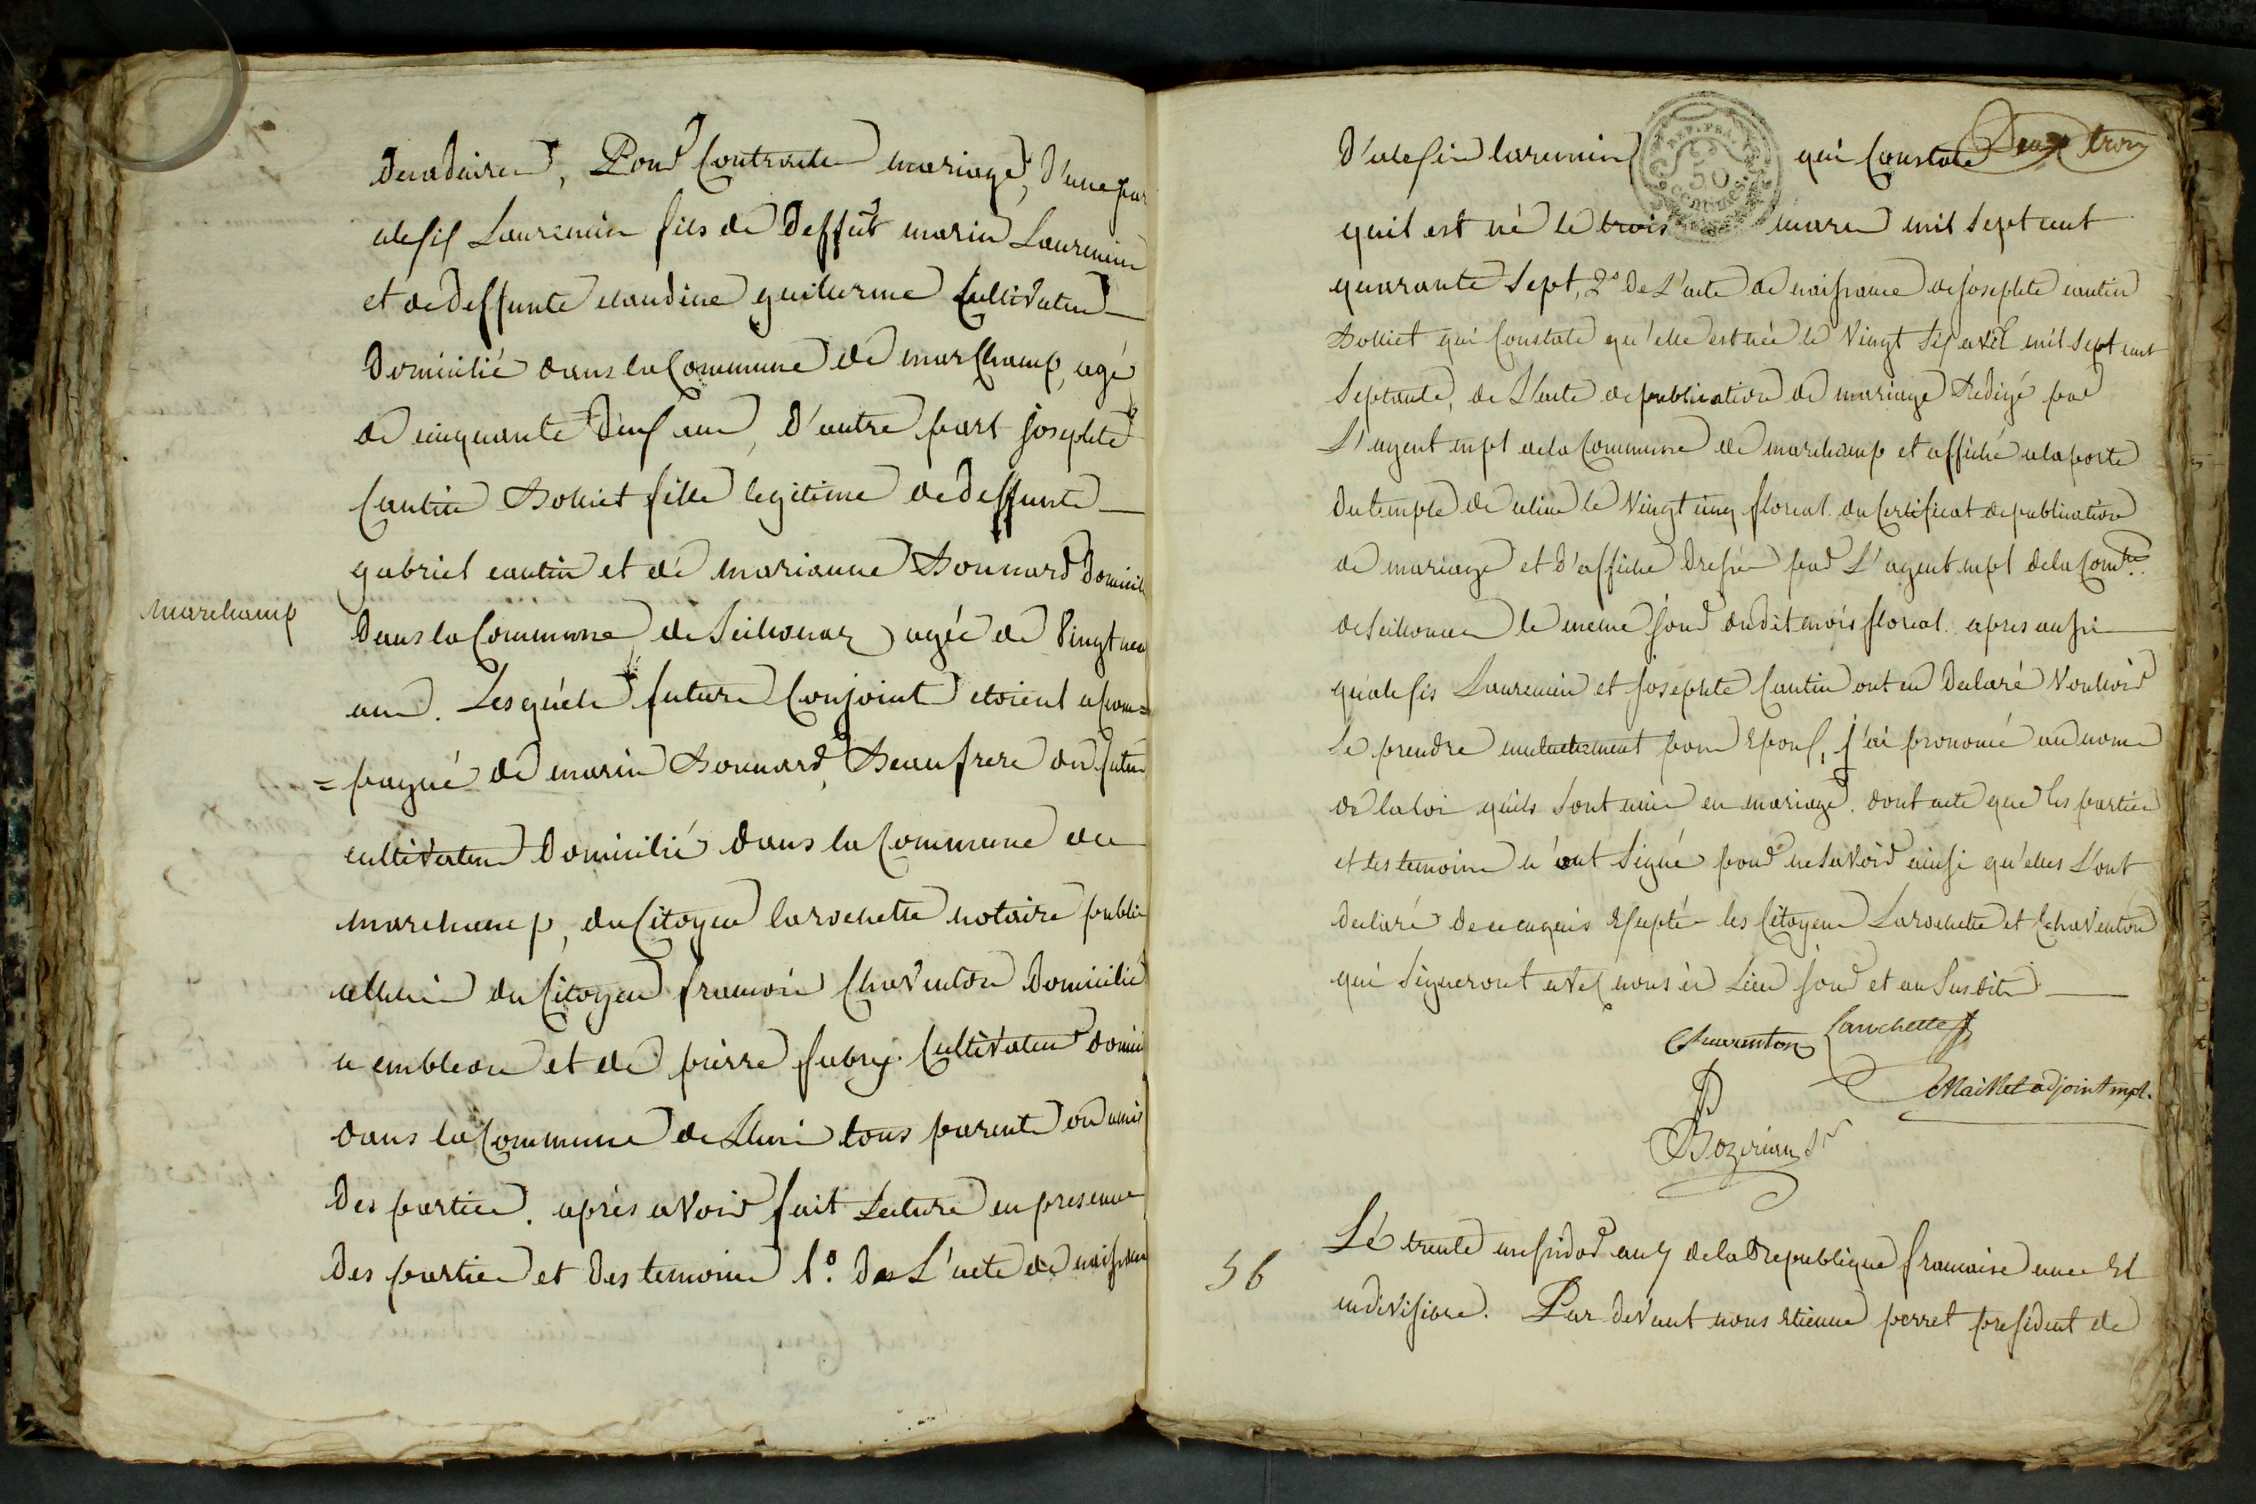 Decadaires, Pour Contracter mariage, d'une par
alexis Lauremin fils de Deffut marin Lauremin
et de deffunte claudine guillerme Cultivateur
Domicilié dans la Commune de marchamp, agé
de cinquante deux ans, d'autre part josephte
Cantin Bolliet fille legitime de deffunts
gabriel cantin et de marianne Bonnard Domicili
marchamp
Dans la Commune de Seillonaz agée de Vingt neu
ans. Lesquels futurs Conjoints etoient acom=
=pagné de marin Bonnard, Beaufrere du futur
cultivateur Domicilié dans la Commune de
marchamp, du Citoyen larochette notaire public
du Citoyen francois Chaventon Domicilié
a embleon et de pierre fabry Cultivateur domici
dans la Commune de Lhui tous parents ou amis
Des parties. après avoir fait Lecture en presence
Des parties et des temoins 1.° de L'acte de naissance
D'alexis laremin qui Constate
Deux trois
REP. FRA.
50
CENTIMES.
quil est né le trois mars mil sept cent
quarante sept, 2.° De L'acte de naissance de josephte cantin
Bolliet qui Constate qu'elle est née le Vingt six avril mil sept cent
Septante, de L'acte de publication de mariage Redigé par
L'agent mpl de la Commune de marchamp et affiché a la porte
du temple de le Vingt cinq floreal du Certificat de publication
de mariage et d'affiche Dressée par L'agent mpl de la Comne.
de Seillonas le meme jour dudit mois floreal. apres aussi
qu'alexis Lauremin et josephte Cantin ont eu Declaré Vouloir
Se prendre mutuelement pour Epoux, j'ai prononcé au nom
de la loi qu'ils sont unis en mariage. dont acte que les parties
et les temoins n'ont Signé pour ne savoir ainsi qu'elles L'ont
Declaré de ce enquis Excepté les Citoyens Larochette et Chaventon
qui Signeront avec nous és Lieu jour et an Susdits
Chaventon Larochette
Maillet adjoint mpl.
Bozerian Sr
56
Le trente messidor an 7 de la Republique francaise une Et
indivisible. Par devant nous etienne perret president de